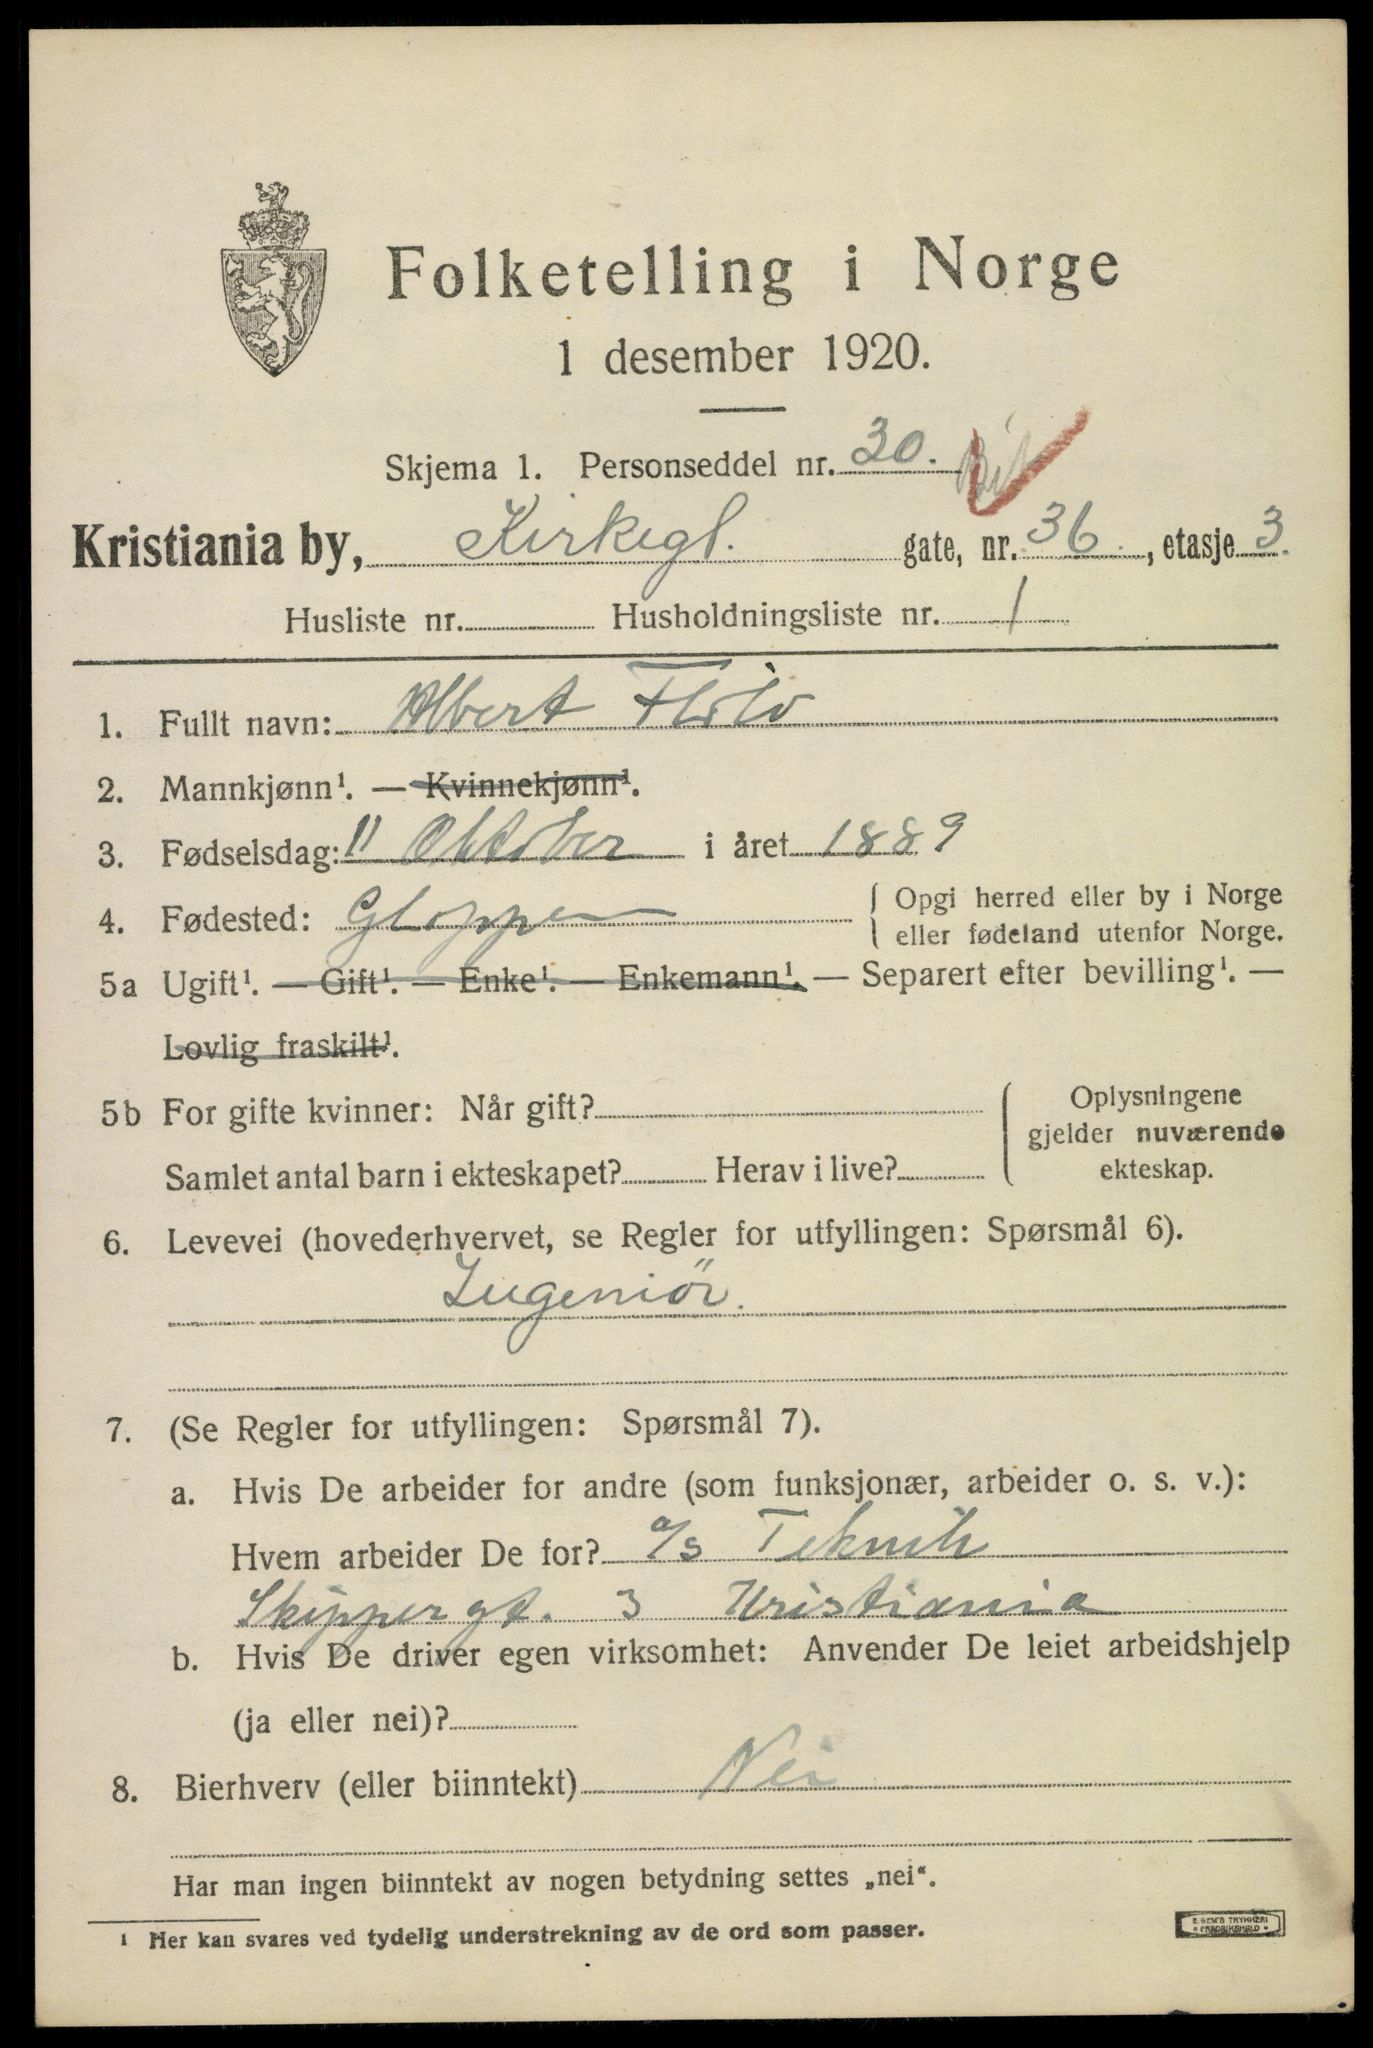 Folketelling i Norge
1 desember 1920.
Skjema 1. Personseddel nr. 30.
Kristiania by, Kirkegt. gate, nr. 36., etasje 3.
Husliste nr. Husholdningsliste nr. 1
1. Fullt navn: Albert
2. Mannkjønn¹. — Kvinnekjønn¹.
3. Fødselsdag: 11 Oktober i året 1889
4. Fødested: Gloppen { Opgi herred eller by i Norge
eller fødeland utenfor Norge.
5a Ugift¹. — Gift¹. — Enke¹. — Enkemann¹. — Separert efter bevilling¹. —
Lovlig fraskilt¹.
5b For gifte kvinner: Når gift? { Oplysningene
gjelder nuværende
Samlet antal barn i ekteskapet? Herav i live? ekteskap.
6. Levevei (hovederhvervet, se Regler for utfyllingen: Spørsmål 6).
Ingeniör.
7. (Se Regler for utfyllingen: Spørsmål 7).
a. Hvis De arbeider for andre (som funksjonær, arbeider o. s. v.):
Hvem arbeider De for? a/s Teknik
Skippergt. 3 Kristiania
b. Hvis De driver egen virksomhet: Anvender De leiet arbeidshjelp
(ja eller nei)?
8. Bierhverv (eller biinntekt) Nei
Har man ingen biinntekt av nogen betydning settes „nei“.
¹ Her kan svares ved tydelig understrekning av de ord som passer.
E. SEM'S TRYKKERI
FREDRIKSHALD